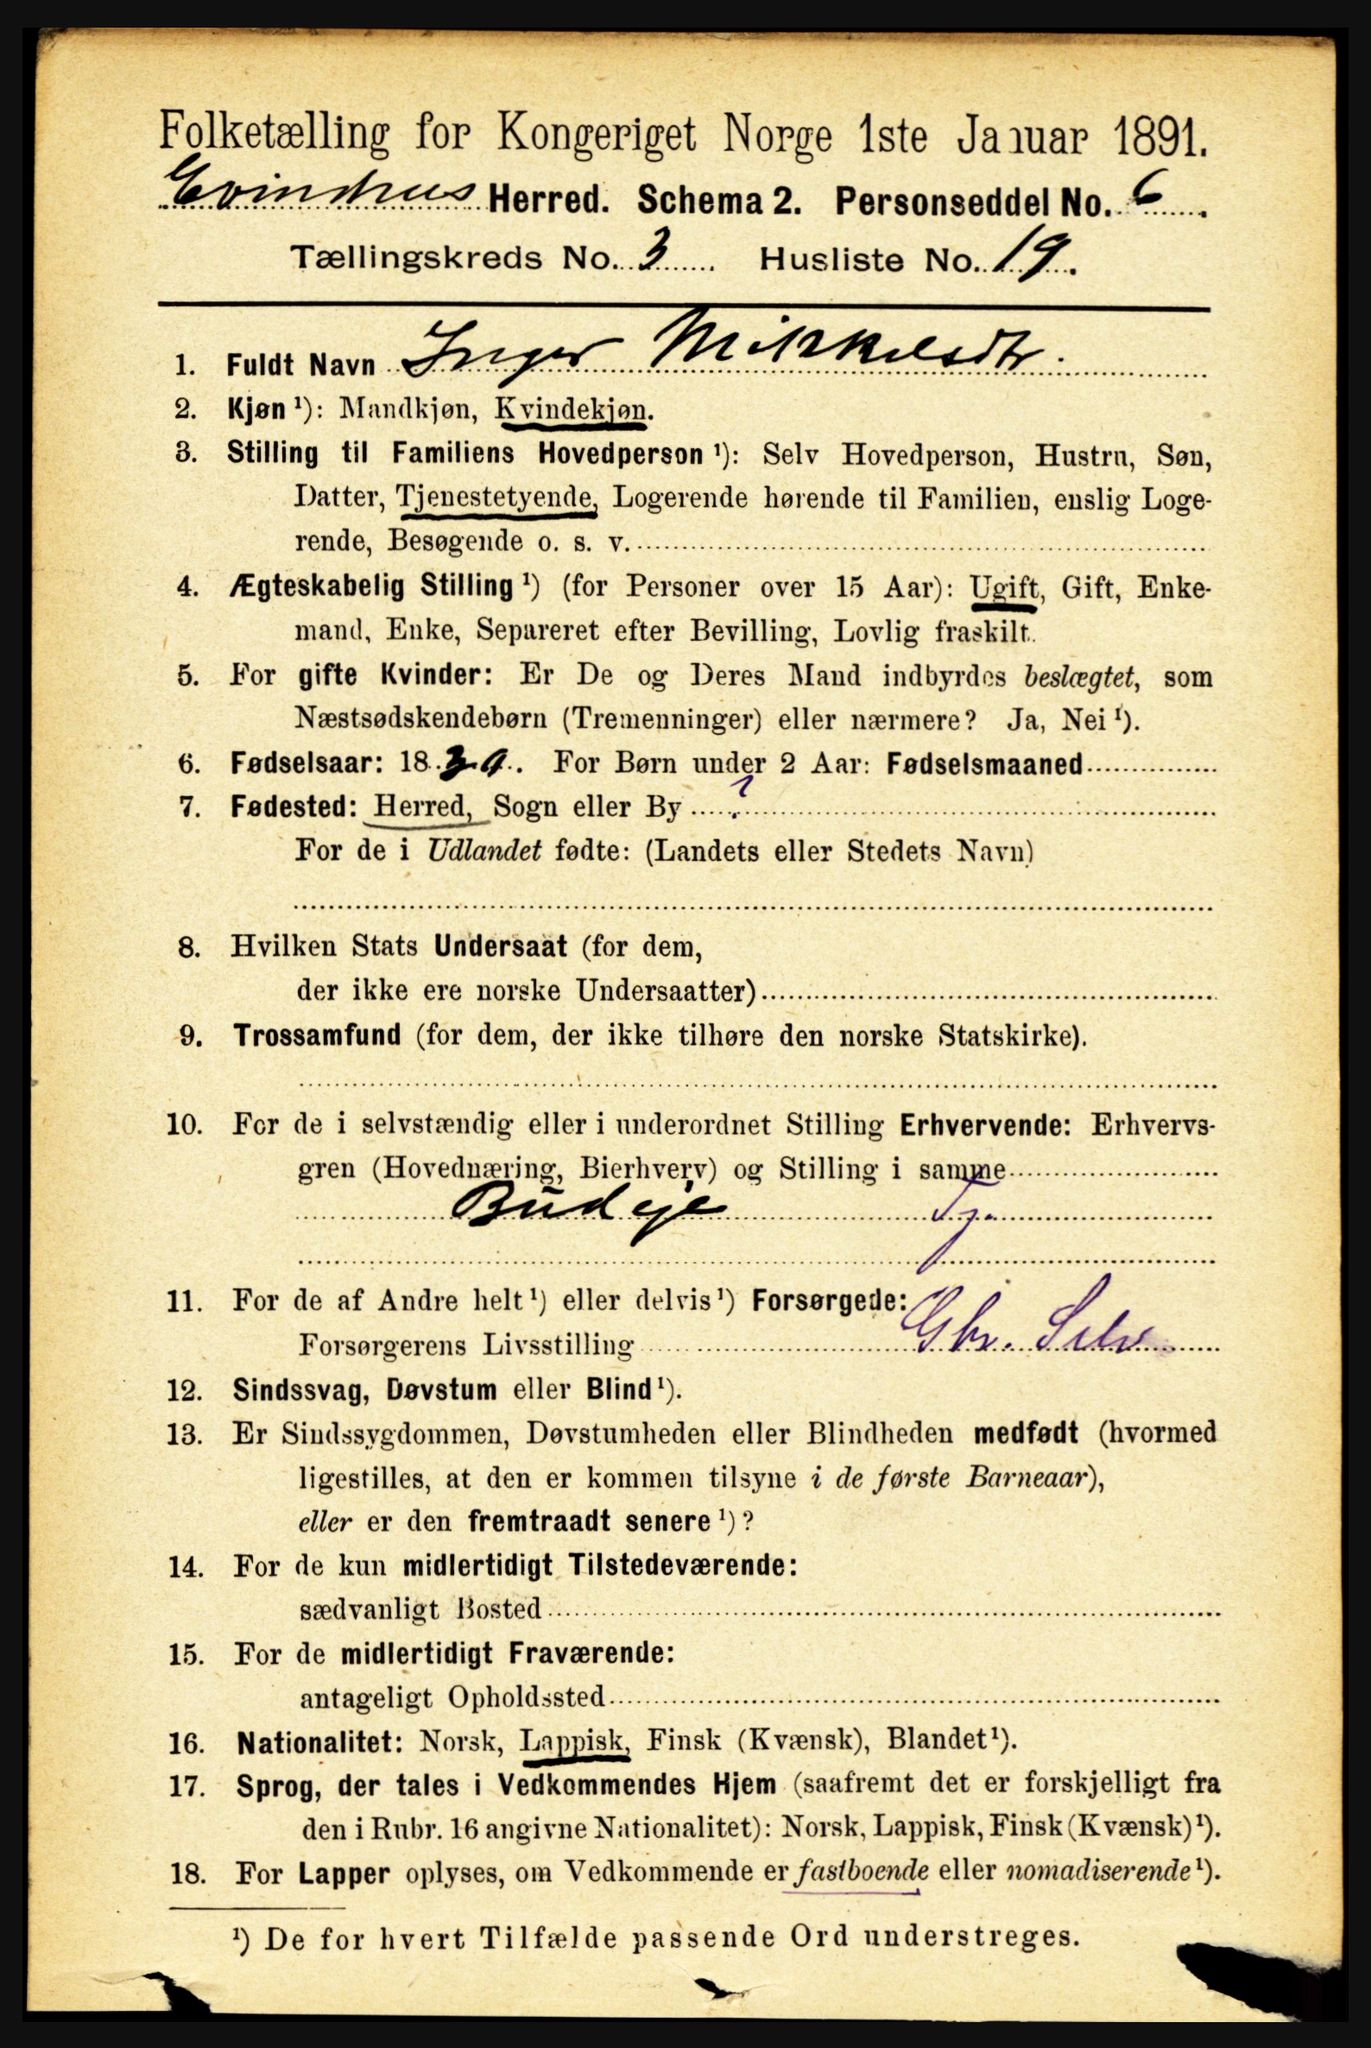 Folketælling for Kongeriget Norge 1ste Januar 1891.
Evindnæs Herred. Schema 2. Personseddel No. 6
Tællingskreds No. 3 Husliste No. 19.
1. Fuldt Navn Inger Mikkelsdtr.
2. Kjøn ¹): Mandkjøn, Kvindekjøn.
3. Stilling til Familiens Hovedperson ¹): Selv Hovedperson, Hustru, Søn,
Datter, Tjenestetyende, Logerende hørende til Familien, enslig Loge-
rende, Besøgende o. s. v.
4. Ægteskabelig Stilling ¹) (for Personer over 15 Aar): Ugift, Gift, Enke-
mand, Enke, Separeret efter Bevilling, Lovlig fraskilt.
5. For gifte Kvinder: Er De og Deres Mand indbyrdes beslægtet, som
Næstsødskendebørn (Tremenninger) eller nærmere? Ja, Nei ¹).
6. Fødselsaar: 1839. For Børn under 2 Aar: Fødselsmaaned
7. Fødested: Herred, Sogn eller By ?
For de i Udlandet fødte: (Landets eller Stedets Navn)
8. Hvilken Stats Undersaat (for dem,
der ikke ere norske Undersaatter)
9. Trossamfund (for dem, der ikke tilhøre den norske Statskirke).
10. For de i selvstændig eller i underordnet Stilling Erhvervende: Erhvervs-
gren (Hovednæring, Bierhverv) og Stilling i samme
Budeje Tj.
11. For de af Andre helt ¹) eller delvis ¹) Forsørgede:
Forsørgerens Livsstilling Gbr. Selv
12. Sindssvag, Døvstum eller Blind ¹).
13. Er Sindssygdommen, Døvstumheden eller Blindheden medfødt (hvormed
ligestilles, at den er kommen tilsyne i de første Barneaar),
eller er den fremtraadt senere ¹)?
14. For de kun midlertidigt Tilstedeværende:
sædvanligt Bosted
15. For de midlertidigt Fraværende:
antageligt Opholdssted
16. Nationalitet: Norsk, Lappisk, Finsk (Kvænsk), Blandet ¹).
17. Sprog, der tales i Vedkommendes Hjem (saafremt det er forskjelligt fra
den i Rubr. 16 angivne Nationalitet): Norsk, Lappisk, Finsk (Kvænsk) ¹).
18. For Lapper oplyses, om Vedkommende er fastboende eller nomadiserende ¹).
¹) De for hvert Tilfælde passende Ord understreges.